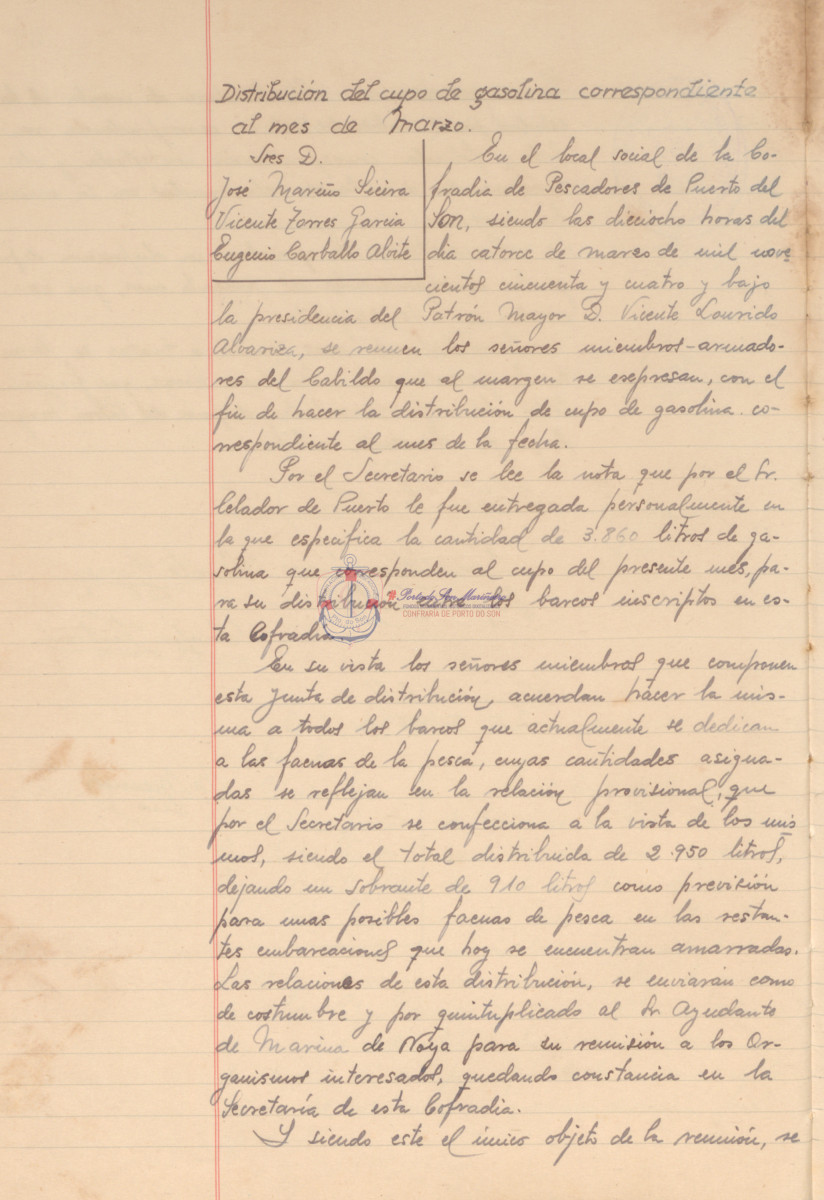 Distribución del cupo de gasolina correspondiente
al mes de Marzo.
Sres D.
José Mariño Sieira
Vicente Torres Garcia
Eugenio Carballo Aloite
En el local social de la Co-
fradia de Pescadores de Puerto del
Son, siendo las dieciocho horas del
dia catorce de marzo de mil nove-
cientos cincuenta y cuatro y bajo
la presidencia del Patrón Mayor D. Vicente Lourido
Alvariza, se reunen los señores miembros-armado-
res del Cabildo que al margen se exepresan, con el
fin de hacer la distribución de cupo de gasolina co-
rrespondiente al mes de la fecha.
Por el Secretario se lee la nota que por el Sr.
Celador de Puerto le fue entregada personalmente en
la que especifica la cantidad de 3.860 litros de ga-
solina que corresponden al cupo del presente mes, pa-
ra su distribución entre los barcos inscriptos en es-
ta Cofradia.
CONFRARIA DE PORTO DO SON
En su vista los señores miembros que componen
esta Junta de distribución, acuerdan hacer la mis-
ma a todos los barcos que actualmente se dedican
a las faenas de la pesca, cuyas cantidades asigna-
das se reflejan en la relación provisional, que
por el Secretario se confecciona a la vista de los mis-
mos, siendo el total distribuida de 2.950 litros,
dejando un sobrante de 910 litros como previsión
para unas posibles faenas de pesca en las restan-
tes embarcaciones que hoy se encuentran amarradas.
Las relaciones de esta distribución, se enviarán como
de costumbre y por quintuplicado al Sr Ayudante
de Marina de Noya para su remisión a los Or-
ganismos interesados, quedando constancia en la
Secretaría de esta Cofradia.
Y siendo este el único objeto de la reunión, se